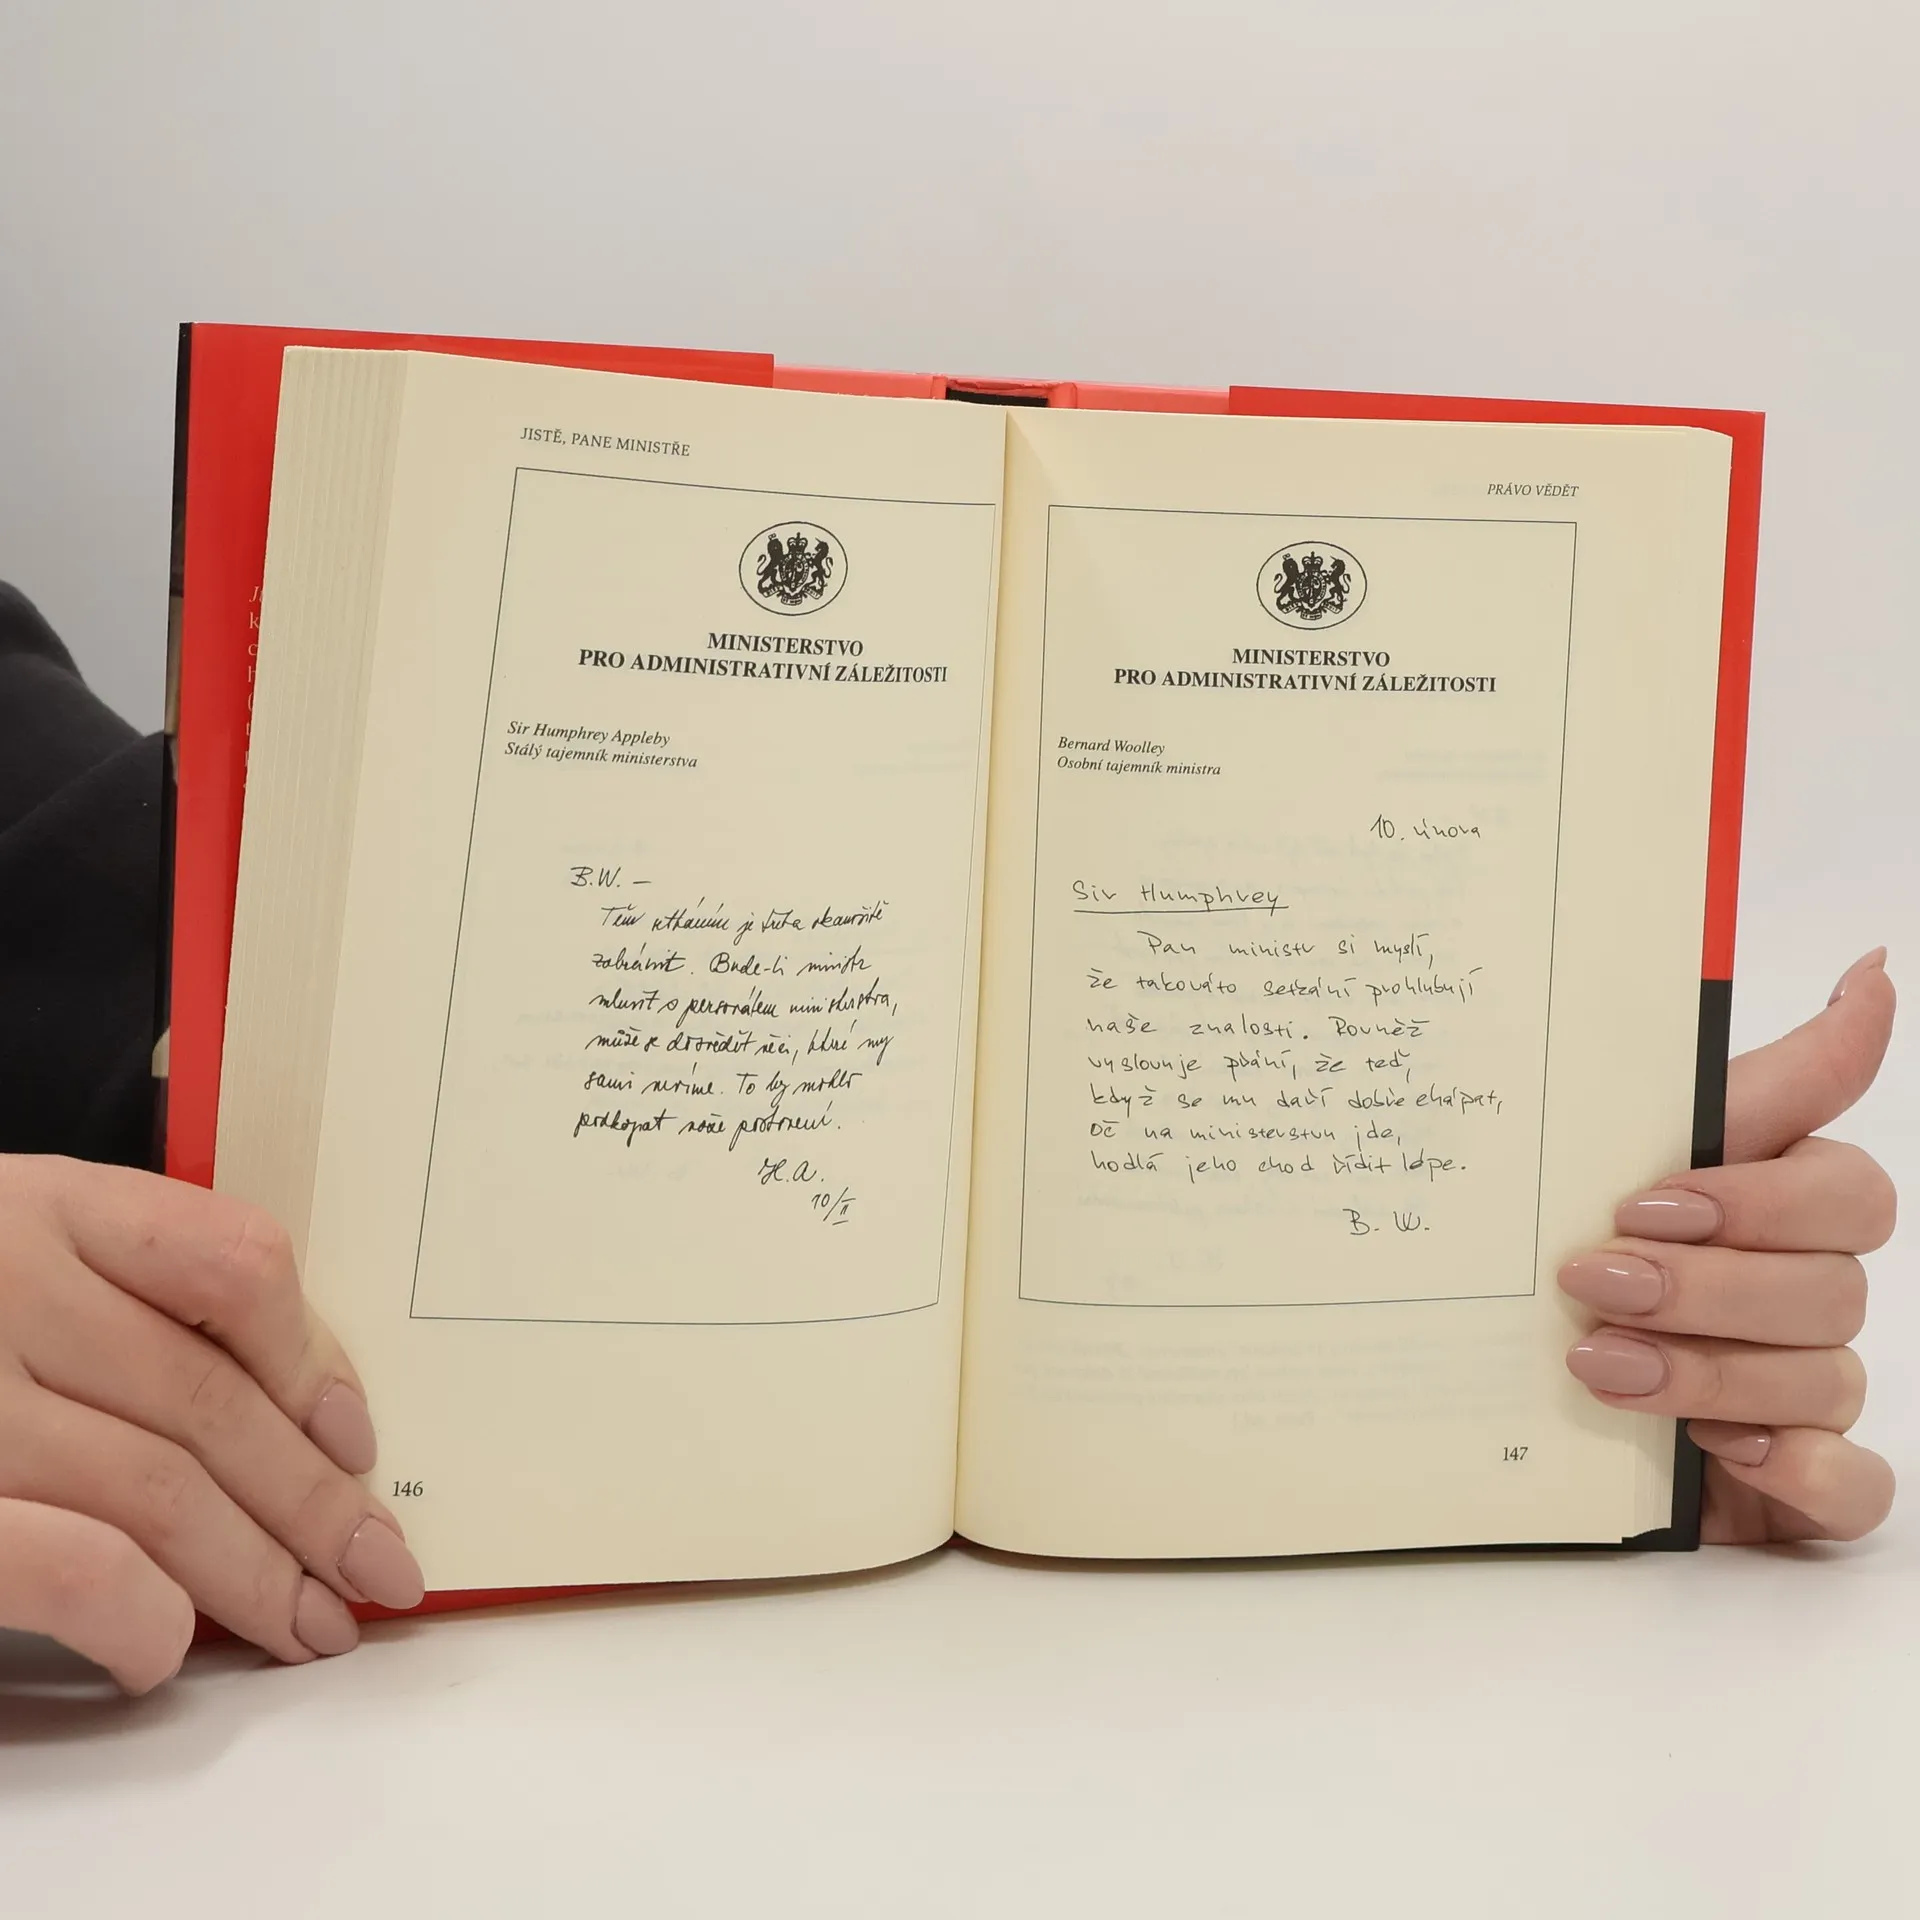 JISTĚ, PANE MINISTŘE
MINISTERSTVO
PRO ADMINISTRATIVNÍ ZÁLEŽITOSTI
Sir Humphrey Appleby
Stálý tajemník ministerstva
B.W. –
Těm utkáním je třeba okamžitě
zabránit. Bude-li ministr
mluvit s personálem ministerstva,
může se dozvědět věci, které my
sami nevíme. To by mohlo
podkopat naše postavení.
H.A.
10/II
146
PRÁVO VĚDĚT
MINISTERSTVO
PRO ADMINISTRATIVNÍ ZÁLEŽITOSTI
Bernard Woolley
Osobní tajemník ministra
10. února
Sir Humphrey
Pan ministr si myslí,
že takováto setkání prohlubují
naše znalosti. Rovněž
vyslovuje přání, že teď,
když se mu daří dobře chápat,
oč na ministerstvu jde,
hodlá jeho chod řídit lépe.
B. W.
147